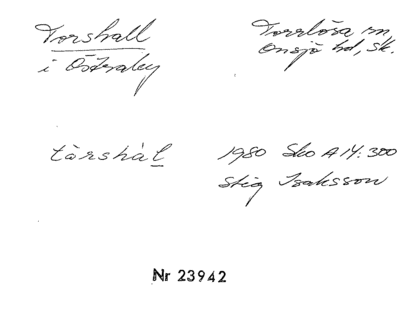 Torshall
i Östraby
Torrlösa sn
Onsjö hd, Sk.
tàrshàl
1980 Sko A 14:300
Stig Isaksson
Nr 23942